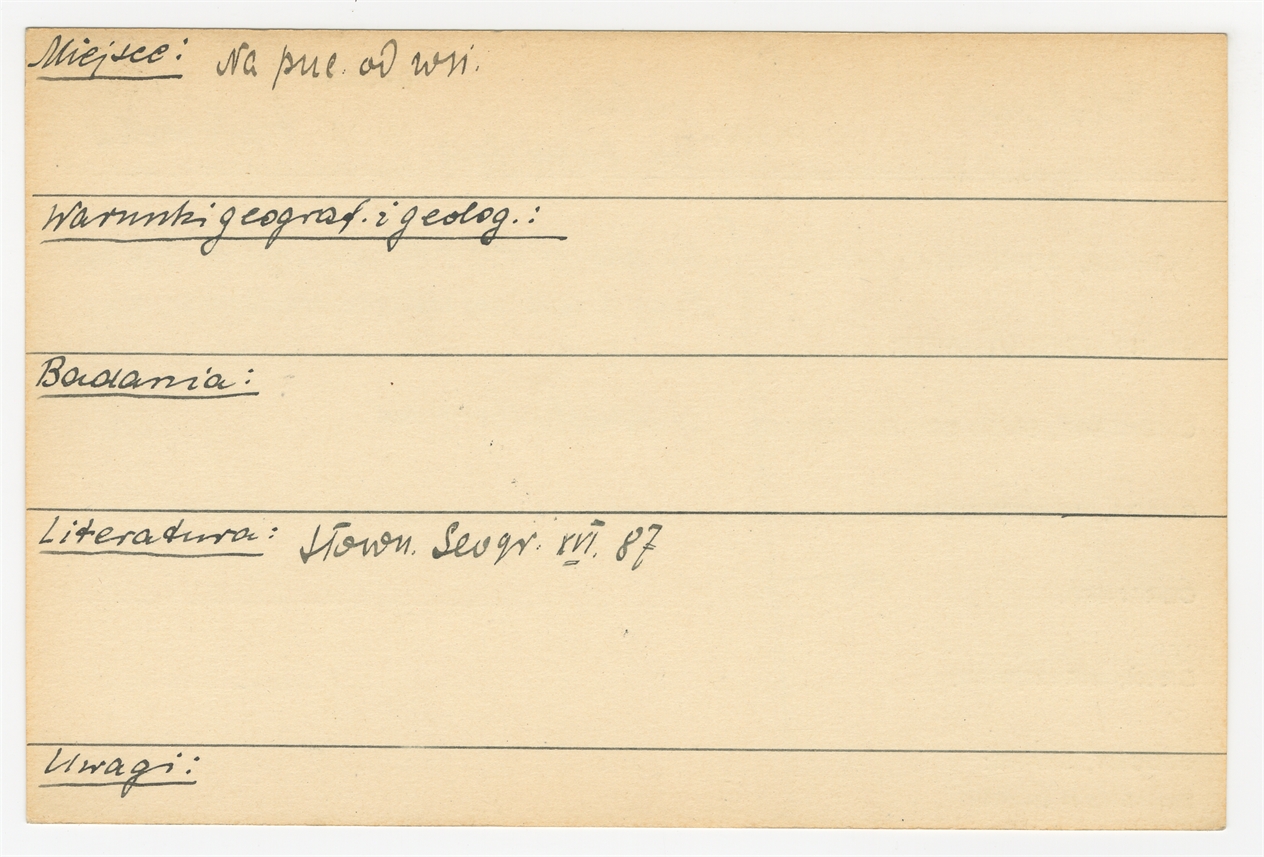 Miejsce: Na pnc. od wsi.
Warunki geograf. i geolog.:
Badania:
Literatura: Słown. Geogr. XVI. 87
Uwagi: